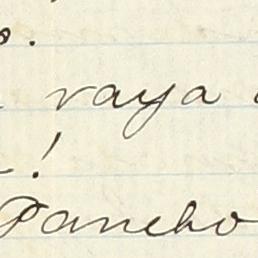 vaya
!
Pancho